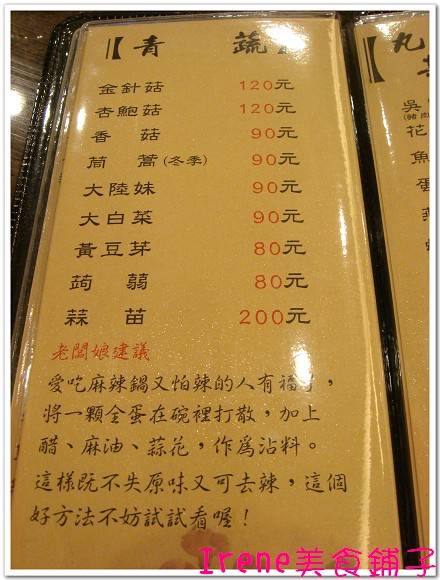 【青 蔬
金針菇 120元
杏鮑菇 120元
香菇 90元
茼蒿(冬季) 90元
大陸妹 90元
大白菜 90元
黃豆芽 80元
蒟蒻 80元
蒜苗 200元
老闆娘建議
愛吃麻辣鍋又怕辣的人有福了，
將一顆全蛋在碗裡打散，加上
醋、麻油、蒜花，作為沾料。
這樣既不失原味又可去辣，這個
好方法不妨試試看喔！
丸
吳
花
魚
蛋
燕
Irene美食鋪子